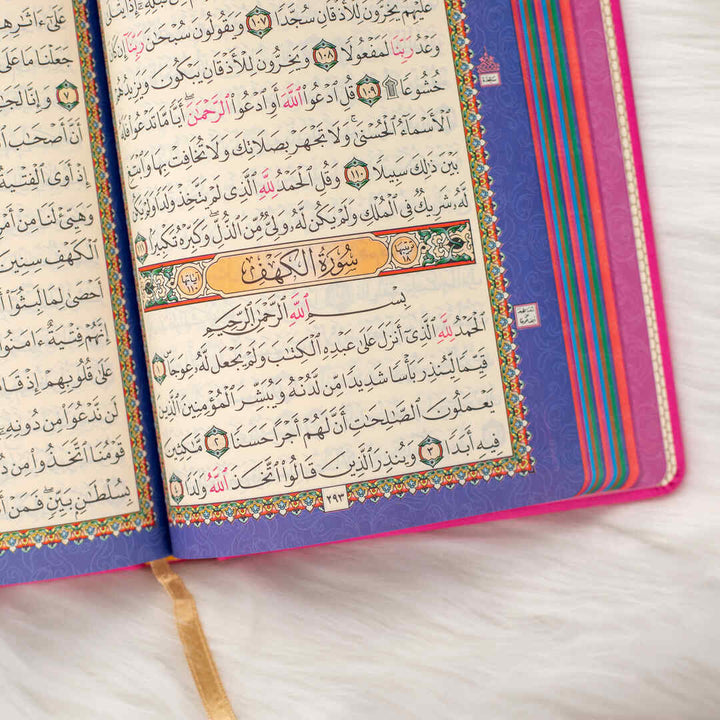 عليهم يخرون للأذقان سجدا ١٠٧ ويقولون سبحن ربنا إن كان
وعد ربنا لمفعولا ١٠٨ ويخرون للأذقان يبكون ويزيدهم
خشوعا ۩ ١٠٩ قل ادعوا الله أو ادعوا الرحمن أيا ما تدعوا فله
الأسماء الحسنى ولا تجهر بصلاتك ولا تخافت بها وابتغ
بين ذلك سبيلا ١١٠ وقل الحمد لله الذى لم يتخذ ولدا ولم يكن
له شريك فى الملك ولم يكن له ولى من الذل وكبره تكبيرا
سورة الكهف
بسم الله الرحمن الرحيم
الحمد لله الذى أنزل على عبده الكتب ولم يجعل له عوجا ١
قيما لينذر بأسا شديدا من لدنه ويبشر المؤمنين الذين
يعملون الصلحت أن لهم أجرا حسنا ٢ مكثين
فيه أبدا ٣ وينذر الذين قالوا اتخذ الله ولدا ٤
٢٩٣
على ءاثرهم
جعلنا ما على
٧ وإنا لجا
أن أصحب ا
إذ أوى الفتية
وهيئ لنا من أمر
الكهف سنين
أحصى لما لبثوا أ
إنهم فتية ءامنوا
على قلوبهم إذ قا
لن ندعوا من دونه
قومنا اتخذوا من
بسلطن بين فمن أ